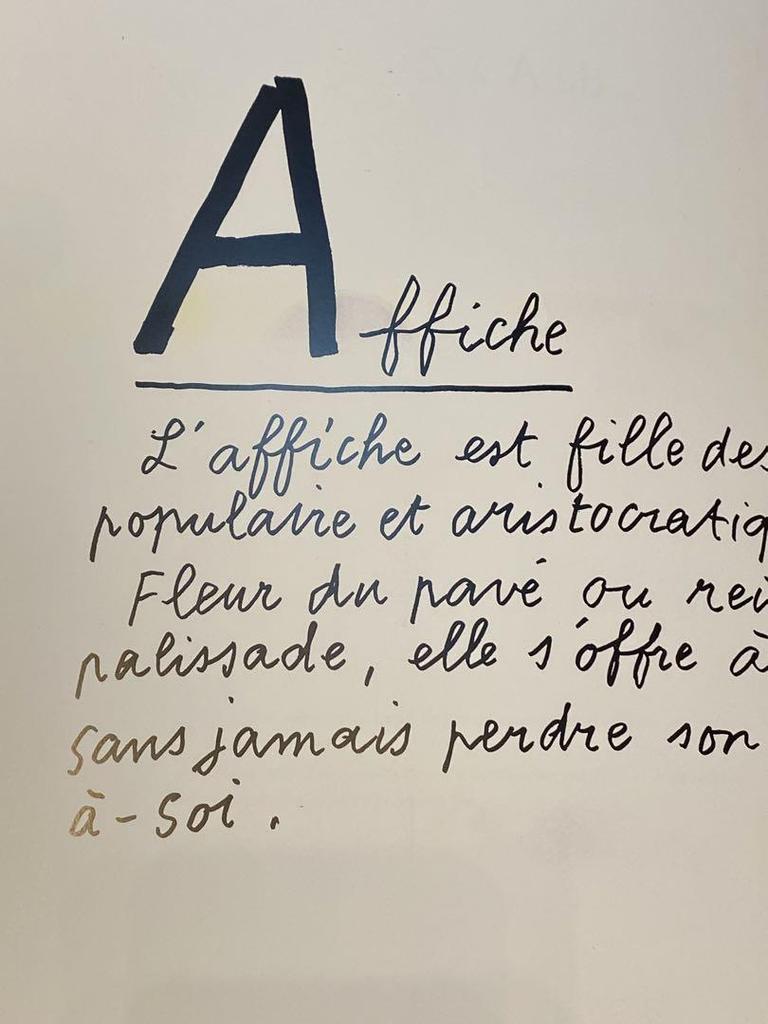 Affiche
L'affiche est fille des
populaire et aristocratiq
Fleur du pavé ou rei
palissade, elle s'offre à
sans jamais perdre son
à-soi.